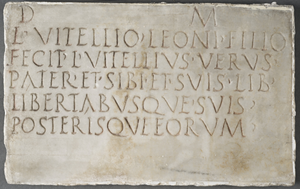 D M
L·VITELLIO·LEONI·FILIO
FECIT·L·VITELLIVS·VERVS
PATER·ET·SIBI·ET·SVIS·LIB
LIBERTABVSQVE·SVIS
POSTERISQVE·EORVM